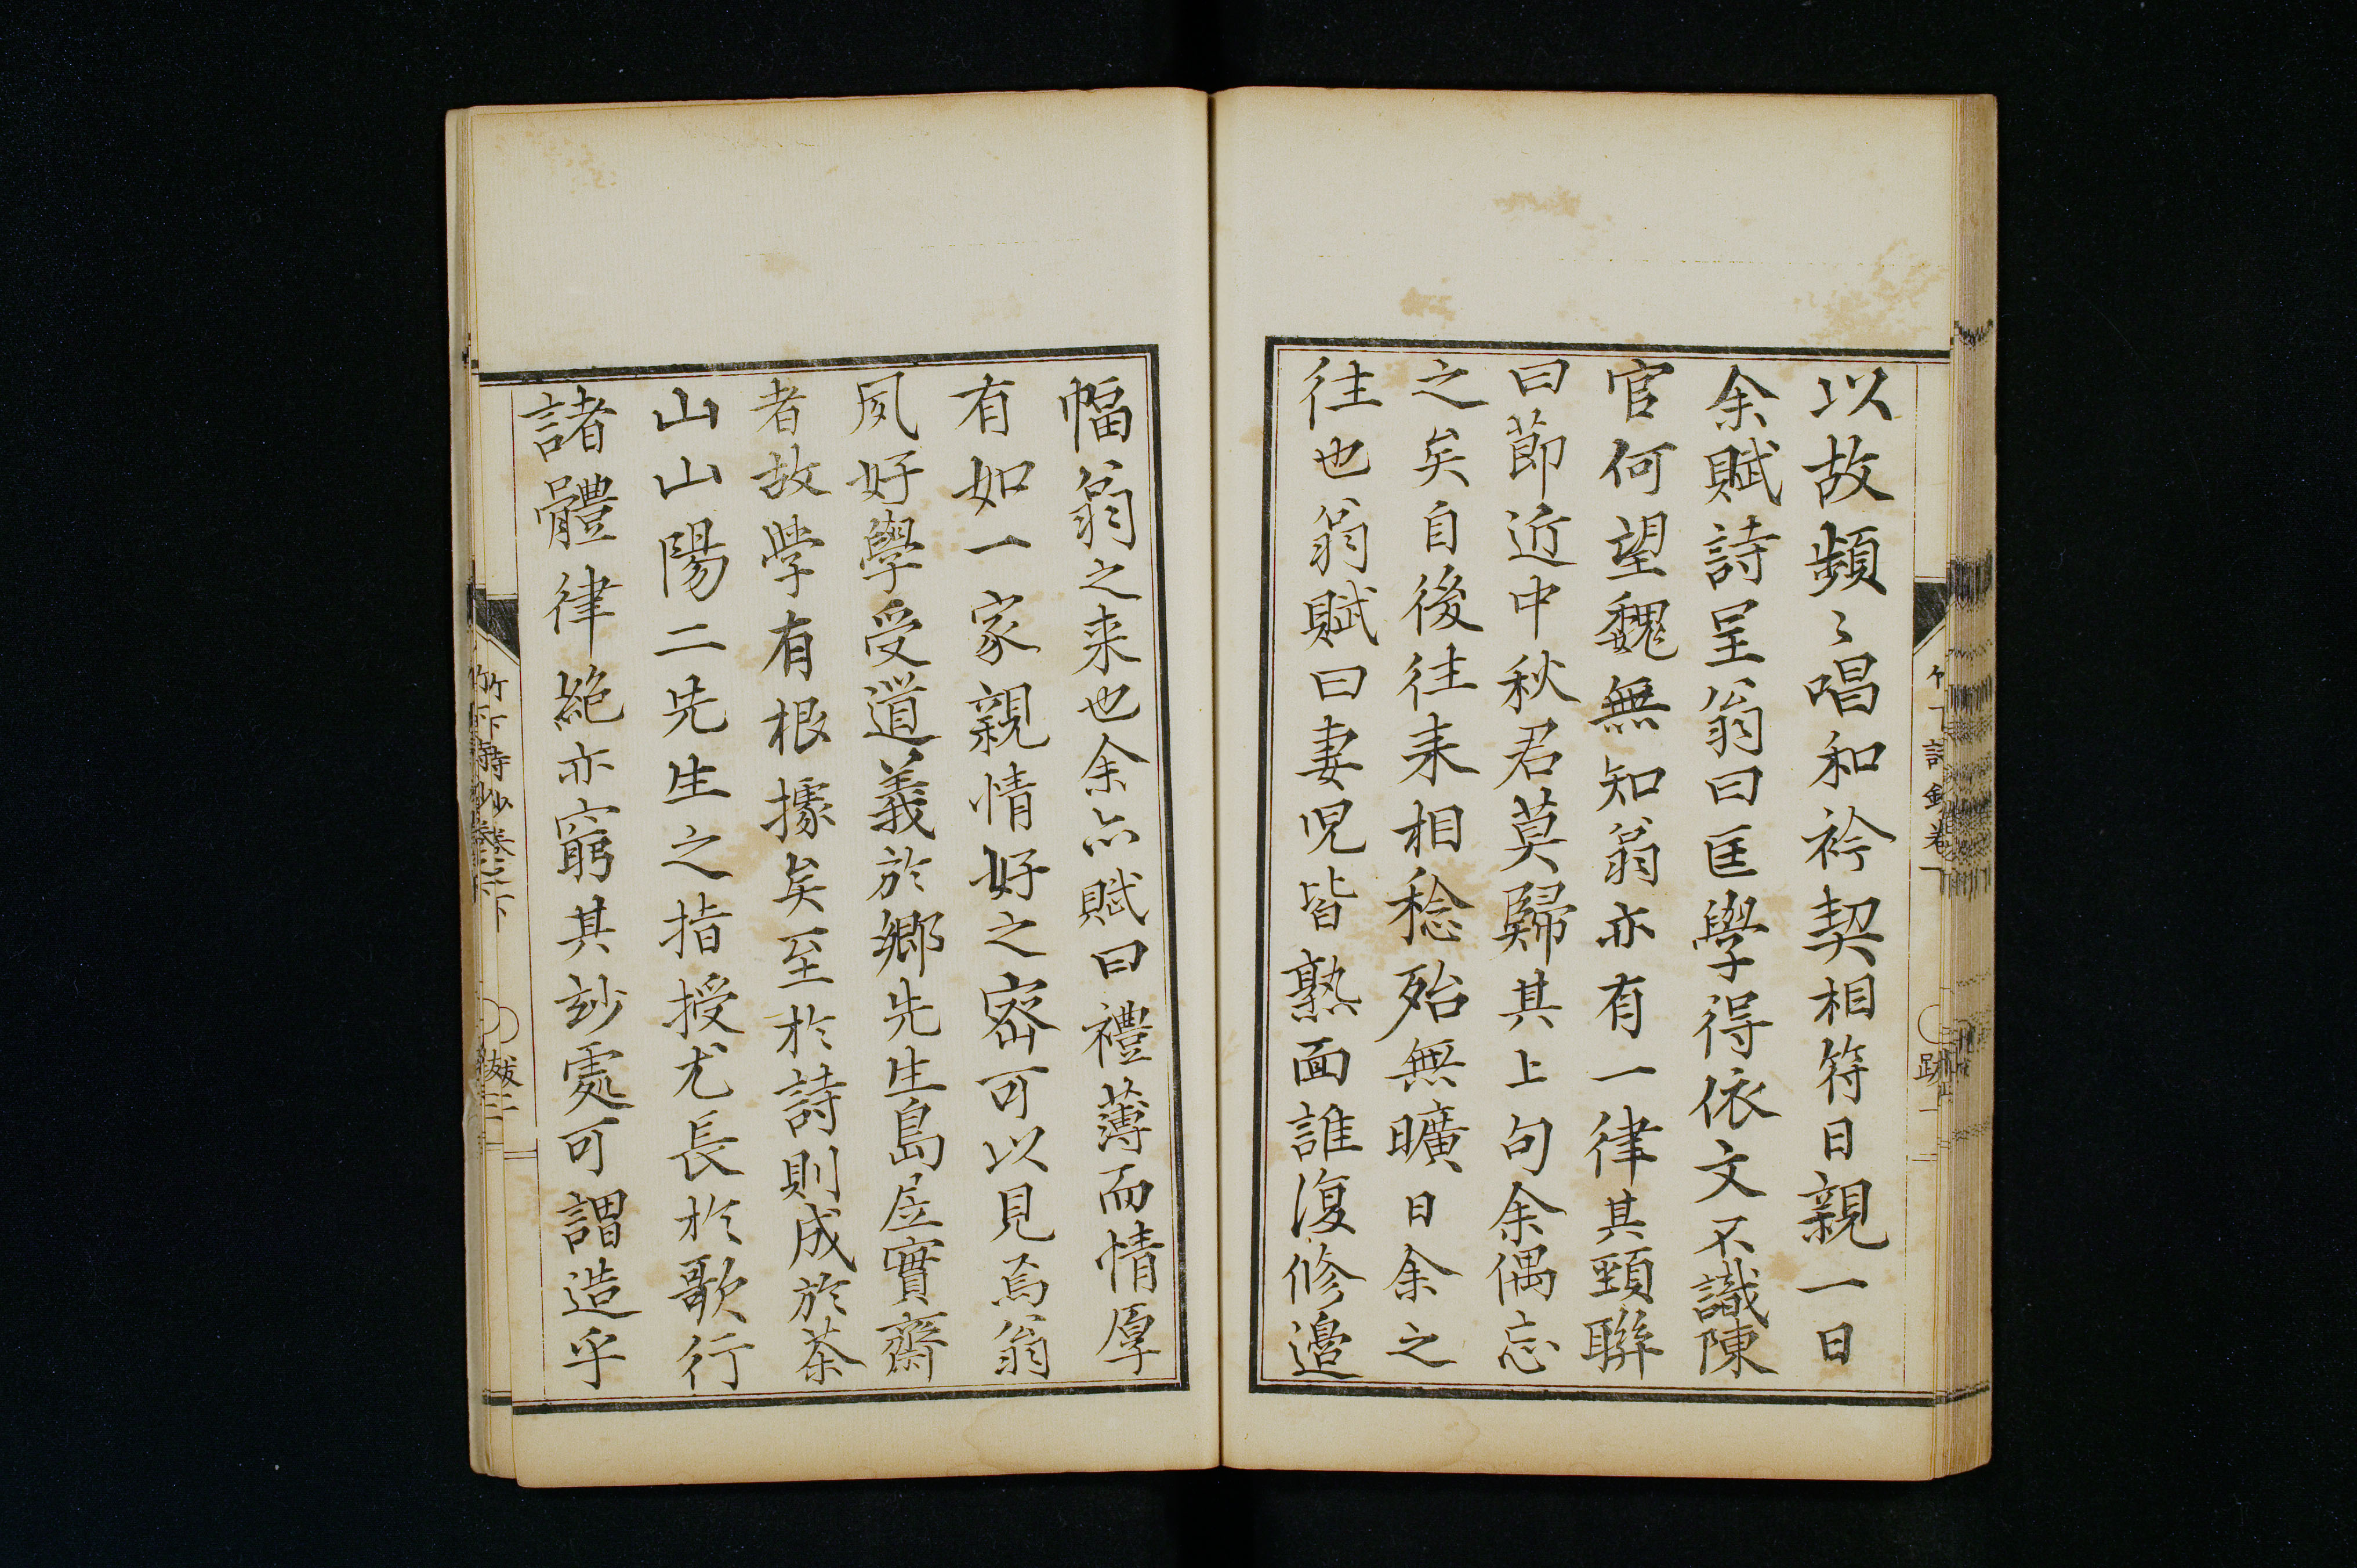 以故頻〻唱和衿契相符日親一日
余賦詩呈翁曰匡學得依文不識陳
官何望魏無知翁亦有一律其頸聯
曰節近中秋君莫歸其上句余偶忘
之矣自後往来相稔殆無曠日余之
往也翁賦曰妻児皆熟面誰復修邊
幅翁之来也余亦賦曰禮薄而情厚
有如一家親情好之密可以見焉翁
夙好學受道義於鄉先生島居實齋
者故学有根據矣至於詩則成於茶
山山陽二先生之指授尤長於歌行
諸體律絶亦窮其玅處可謂造乎
竹下詩鈔卷下
跋二